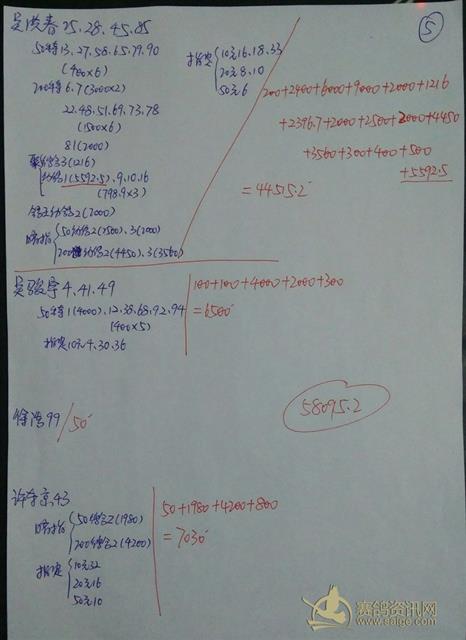 吴俊春 25.28.45.85
⑤
50特13.27.58.65.79.90
(400×6)
200特6.7(3000×2)
22.48.51.69.73.78
(1500×6)
81(2000)
3(1216)
幼鸽1(5592.5).9.10.16
(798.9×3)
幼鸽2(2000)
50幼鸽2(2500).3(2000)
200幼鸽2(4450).3(3560)
指定
10元16.18.33
20元8.10
50元6
200+2400+6000+9000+2000+1216
+2396.7+2000+2500+2000+4450
+3560+300+400+500
+5592.5
=44515.2
吴骏宇4.41.49
50特1(4000).12.38.68.92.94
(400×5)
指定10元4.30.36
100+100+4000+2000+300
=6500
徐浩99/50
58095.2
许京43
50综合2(1980)
200综合2(4200)
指定
10元32
20元16
50元10
50+1980+4200+800
=7030
赛鸽资讯网
www.saige.com